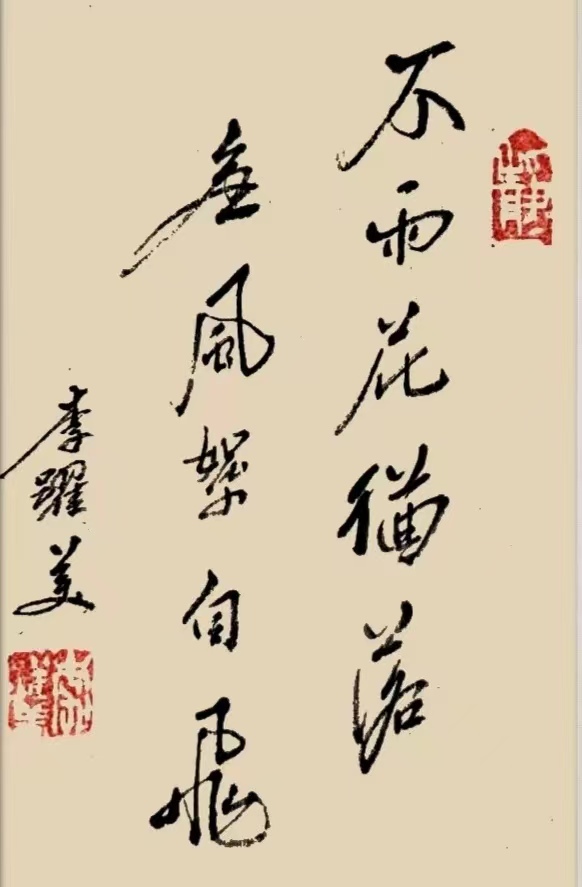 不雨花猶落
無風絮自飛
李躍美